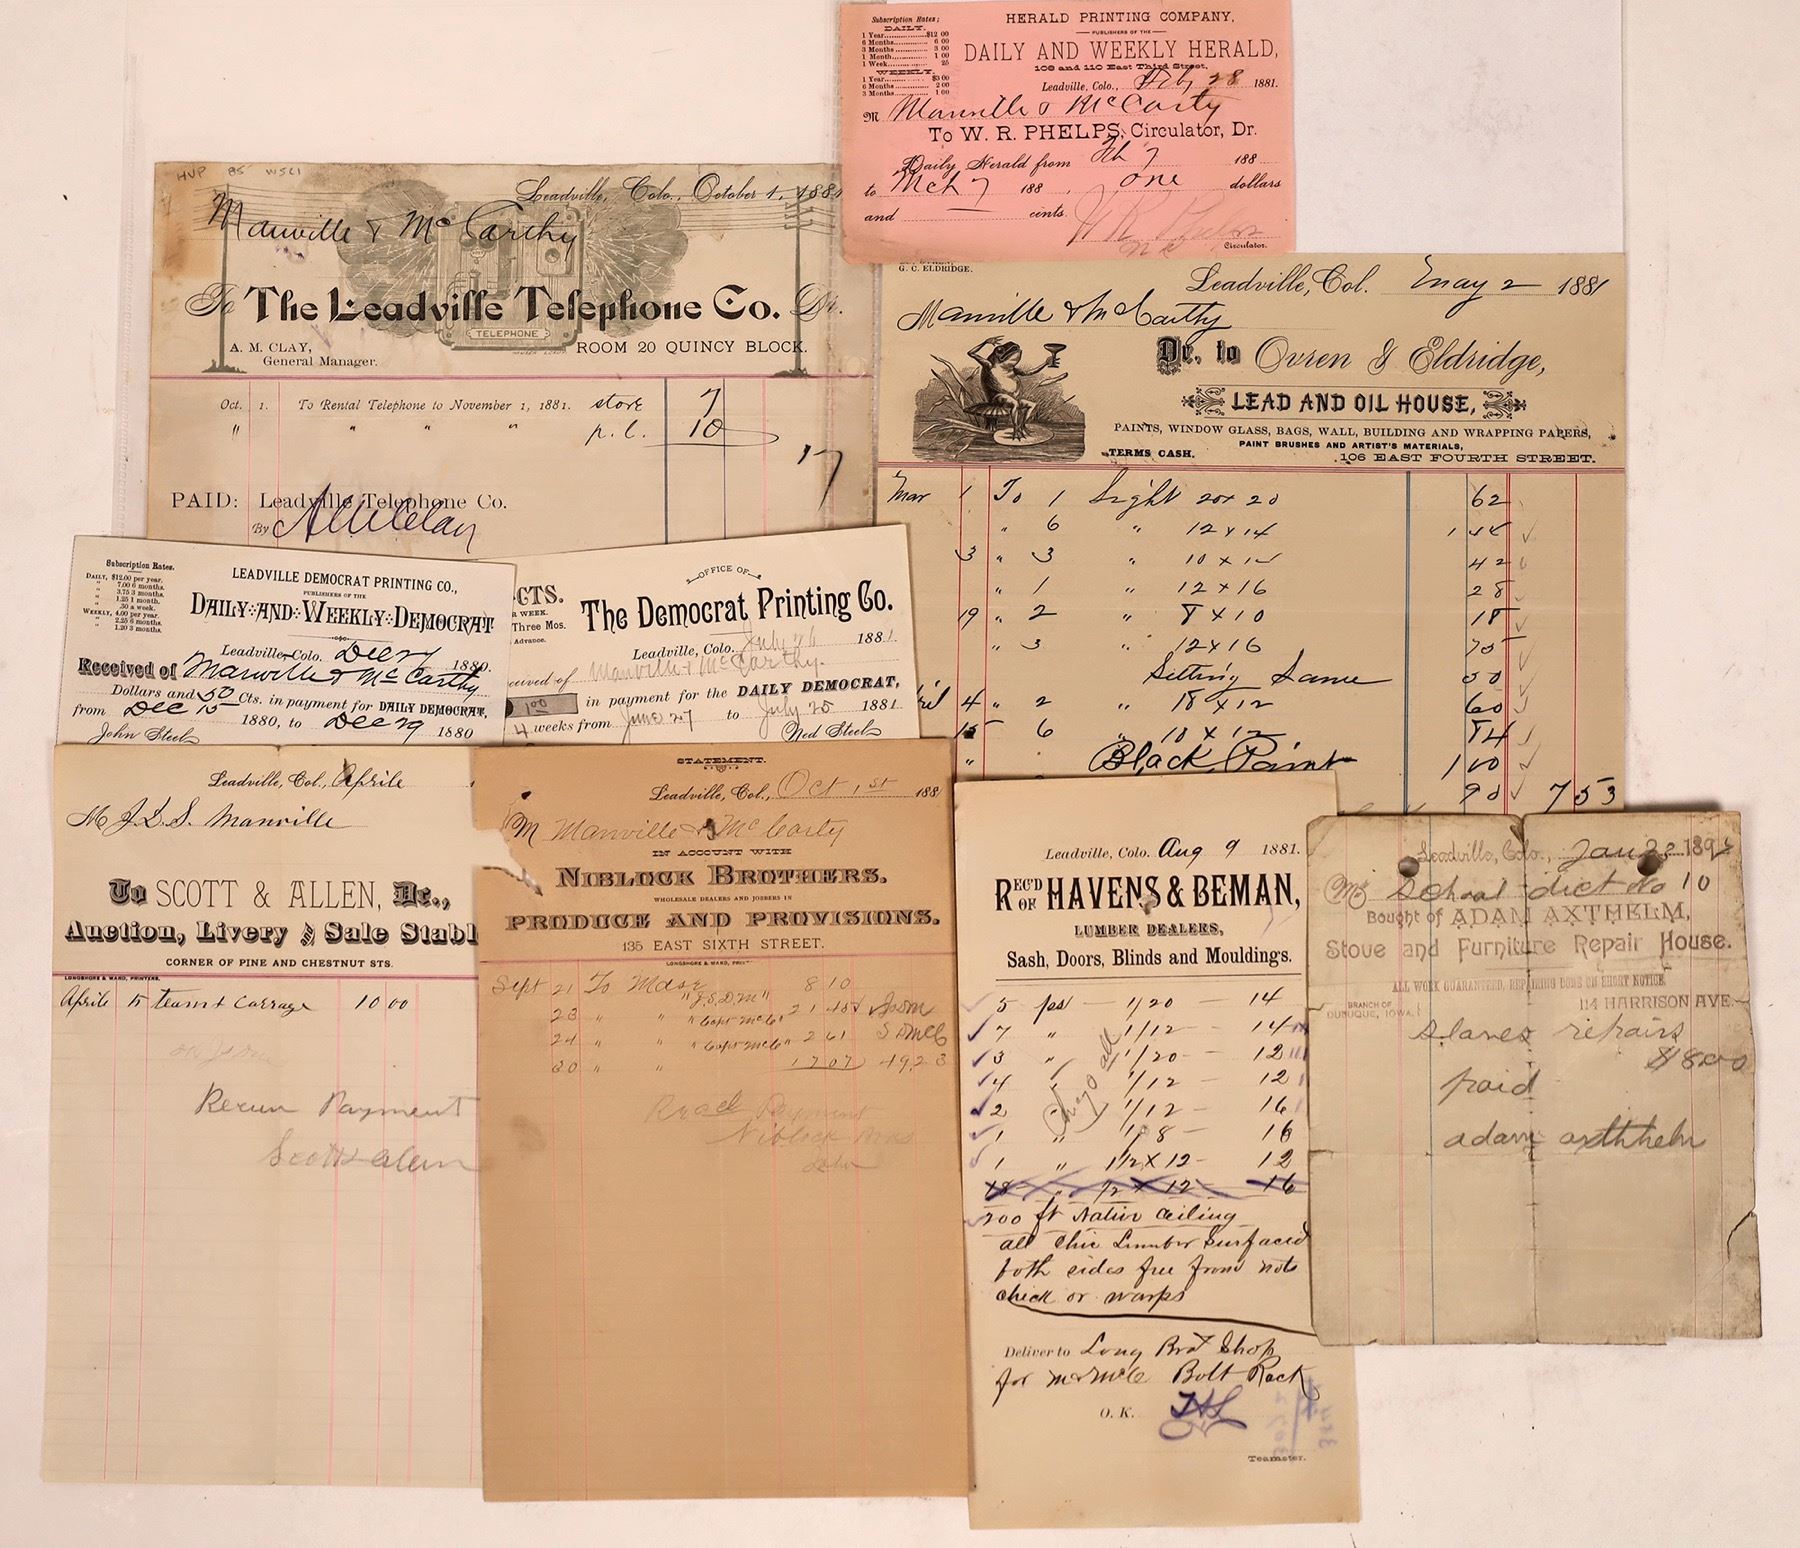 Subscription Rates;
DAILY.
1 Year $12 00
6 Months 6 00
3 Months 3 00
1 Month 1 00
1 Week 25
WEEKLY.
1 Year $3 00
6 Months 2 00
3 Months 1 00
HERALD PRINTING COMPANY,
PUBLISHERS OF THE
DAILY AND WEEKLY HERALD,
108 and 110 East Third Street,
Leadville, Colo., Feb 28 1881.
M Manville & McCarty
To W. R. PHELPS, Circulator, Dr.
Daily Herald from Feb 7 188
to Mch 7 188 . one dollars
and — cents.
W R Phelps
Circulator.
HVP 85 WSL1
Leadville, Colo., October 1, 1881
Manville & McCarthy
To The Leadville Telephone Co. Dr.
TELEPHONE
A. M. CLAY,
General Manager.
ROOM 20 QUINCY BLOCK.
Oct. 1. To Rental Telephone to November 1, 1881. store 7
" " " " p. l. 10
17
PAID: Leadville Telephone Co.
By A M Clay
G. C. ELDRIDGE.
Leadville, Col. May 2 1881
Manville & McCarthy
Dr. to Ovren & Eldridge,
LEAD AND OIL HOUSE,
PAINTS, WINDOW GLASS, BAGS, WALL, BUILDING AND WRAPPING PAPERS,
PAINT BRUSHES AND ARTIST'S MATERIALS,
TERMS CASH. 106 EAST FOURTH STREET.
Mar 1 To 1 Light 20x20 62
" 6 " 12x14 1 44
3 " 3 " 10x12 42
" 1 " 12x16 28
19 " 2 " 8x10 18
" 3 " 12x16 75
Setting Same 50
4 " 2 " 18x12 60
15 6 " 10x12 84
" Black Paint 1 00
90 7 53
Subscription Rates.
DAILY, $12.00 per year.
" 7.00 6 months.
" 3.75 3 months.
" 1.25 1 month.
" .30 a week.
WEEKLY, 4.00 per year.
" 2.25 6 months.
" 1.20 3 months.
LEADVILLE DEMOCRAT PRINTING CO.,
PUBLISHERS OF THE
DAILY AND WEEKLY DEMOCRAT
Leadville, Colo. Dec 1880.
Received of Manville & McCarthy
Dollars and 50 Cts. in payment for DAILY DEMOCRAT,
from Dec 15 1880, to Dec 29 1880
John Steel
CTS.
R WEEK.
Three Mos.
Advance.
OFFICE OF
The Democrat Printing Co.
Leadville, Colo. July 26 1881.
ceived of Manville & McCarthy.
1.00 in payment for the DAILY DEMOCRAT,
4 weeks from June 27 to July 25 1881
Ned Steel
Leadville, Col., Aprile
M J. D. S. Manville
To SCOTT & ALLEN, Dr.,
Auction, Livery and Sale Stabl
CORNER OF PINE AND CHESTNUT STS.
LONGSHORE & WARD, PRINTERS.
Aprile 15 team & Carrage 10 00
Payment
Scott & Allen
STATEMENT.
Leadville, Col., Oct 1st 188
M Manville & McCarty
IN ACCOUNT WITH
NIBLOCK BROTHERS.
WHOLESALE DEALERS AND JOBBERS IN
PRODUCE AND PROVISIONS.
135 EAST SIXTH STREET.
LONGSHORE & WARD, PRINT
Sept 21 To Mdse 8 10
23 " " "J.S.D.M" 21 45
24 " " "Capt McC" 2 61
30 " " 17 07 49.23
Payment
Niblock Bros
Leadville, Colo. Aug 9 1881.
REC'D OF HAVENS & BEMAN,
LUMBER DEALERS,
Sash, Doors, Blinds and Mouldings.
5 ps — 1/20 — 14
7 " 1/12 — 14
3 " 1/20 — 12
4 " 1/12 — 12
2 " 1/12 — 16
1 " 1/8 — 16
1 " 1 1/2 x 12 — 12
18 " 1/2 x 12 — 16
Chgo all
200 ft Native Ceiling
all Chic Lumber Surfaced
both sides free from nots
check or warps
Deliver to Long Bros Shop
for M & McC Bolt Rack
O. K.
Teamster.
Leadville, Colo., Jan 23 189
M School dict No 10
Bought of ADAM AXTHELM,
Stove and Furniture Repair House.
ALL WORK GUARANTEED, REPAIRING DONE ON SHORT NOTICE
BRANCH OF
DUBUQUE, IOWA.
114 HARRISON AVE.
repairs
$8.00
paid
adam axthhelm